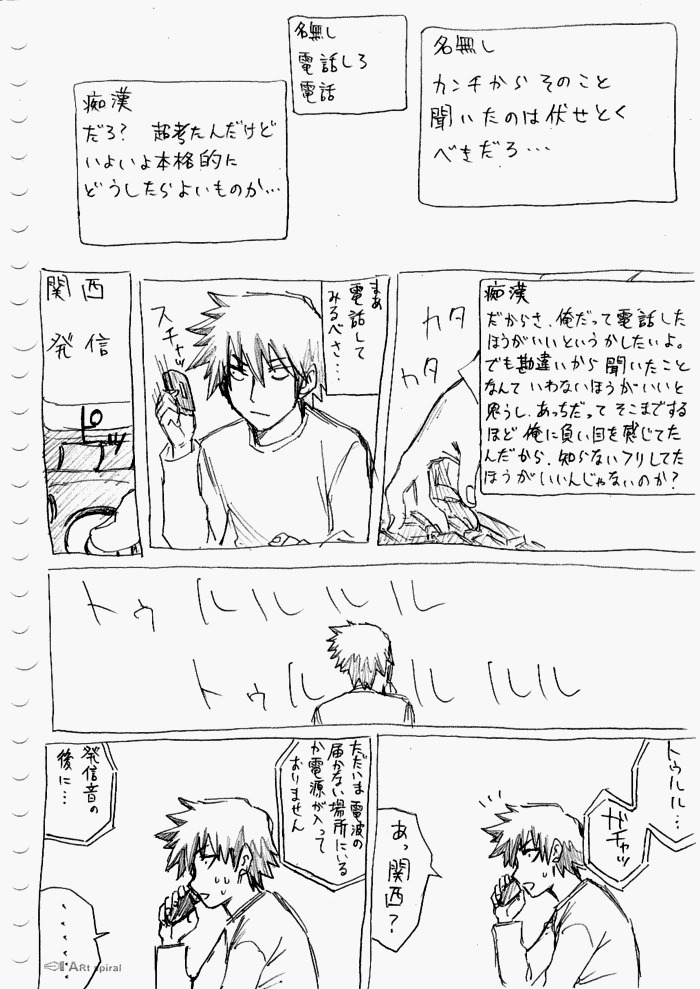 名無し
カンチからそのこと
聞いたのは伏せとく
べきだろ…
名無し
電話しろ
電話
痴漢
だろ？ 超考たんだけど
いよいよ本格的に
どうしたらよいものか…
痴漢
だからさ、俺だって電話した
ほうがいいというかしたいよ。
でも勘違いから聞いたこと
なんていわないほうがいいと
思うし、あっちだってそこまでする
ほど俺に負い目を感じてた
んだから、知らないフリしてた
ほうがいいんじゃないのか？
カタ
カタ
まあ
電話して
みるべさ…
スチャッ
関西
発信
ピッ
トゥルルルルル
トゥルルルルル
トゥルルル…
ガチャッ
あっ関西？
ただいま電波の
届かない場所にいる
か電源が入って
おりません
発信音の
後に…
……
ARt spiral